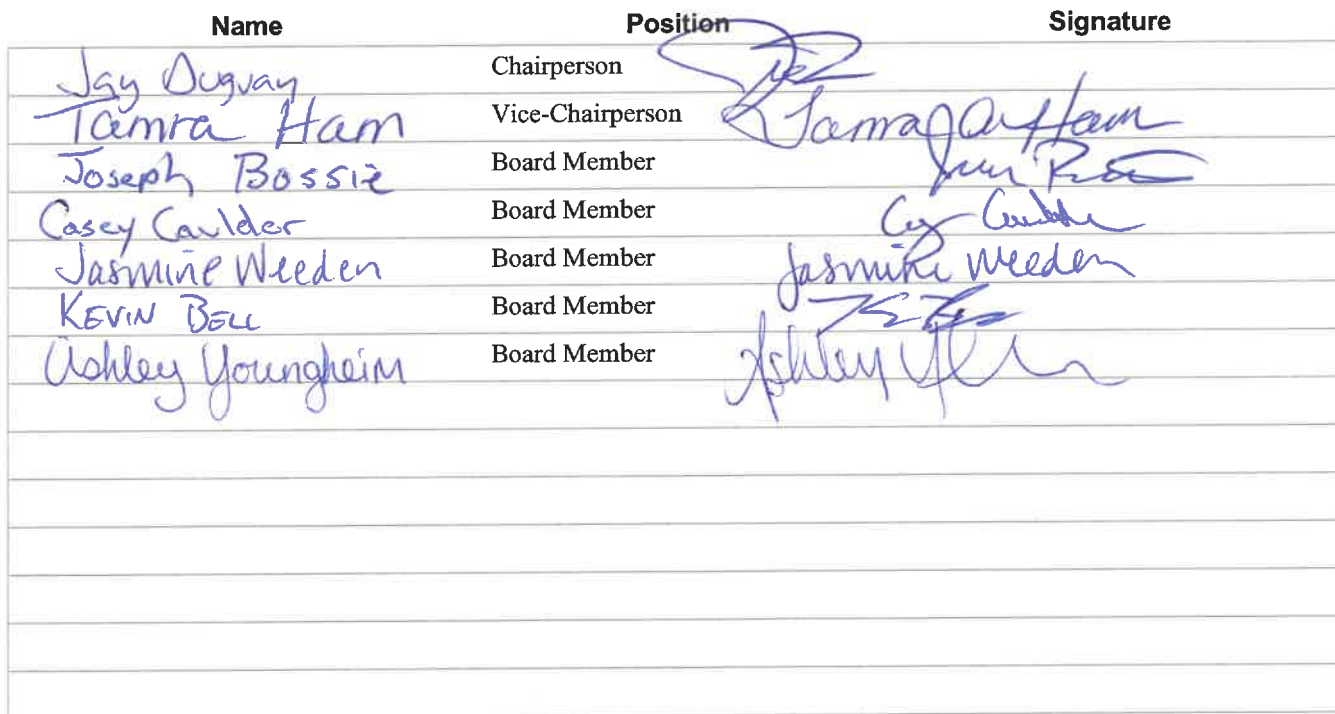 Name Position Signature
Jay Duguay Chairperson
Tamra Ham Vice-Chairperson Tamra Ham
Joseph Bossie Board Member
Casey Caulder Board Member
Jasmine Weeden Board Member Jasmine Weeden
KEVIN BELL Board Member
Ashley Youngheim Board Member Ashley